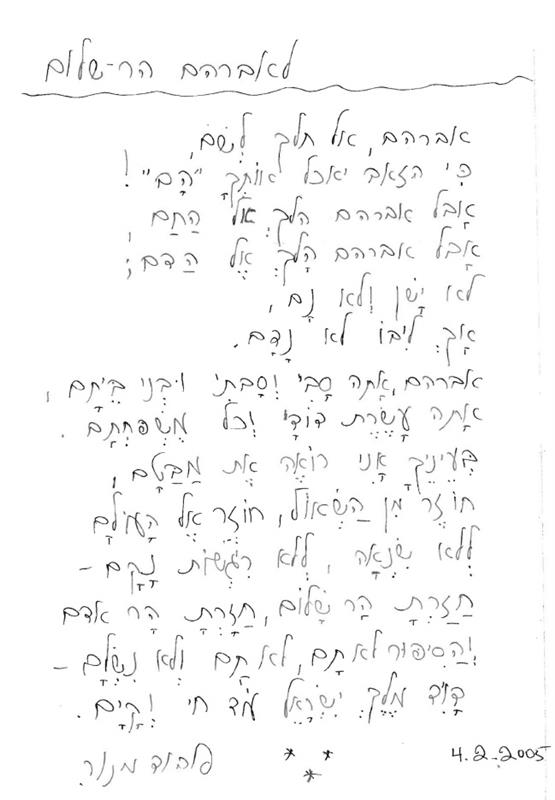 לאברהם הר-שלום
אברהם, אל תלך לְשָׁם,
כִּי הזאב יאכל אוֹתְךָ "הָם"!
אֲבָל אברהם הלך אֶל הַתַּם,
אֲבָל אברהם הָלַךְ אֶל הַדם;
לא יָשַׁן וְלא נָם,
אַךְ לִיבּוֹ לא נָדַם.
אברהם, אַתָּה סָבִי וְסָבָתִי וּבְנֵי בֵּיתָם,
אַתָּה עֲשֶׂרֶת דּוֹדַי וְכל מִשְׁפחְתָּם.
בְּעֵינֶיךָ אֲנִי רוֹאֶה אֶת מַבָּטָם,
חוֹזֵר מִן הַשְּׁאוֹל, חוֹזֵר אֶל הָעוֹלָם
לְלא שִׂנְאָה, לְלא רִגְשׁוֹת נָקָם –
חַזַרְתָּ הַר שָׁלוֹם, חָזַרְתָּ הַר אדם
וְהַסִיפּוּר לא תַם, לא תַם וְלא נִשְׁלָם –
דָּוִד מֶלֶךְ יִשְׂרָאֵל עוֹד חי וְקַיָּם.
4.2.2005 * * * אהוד מנור